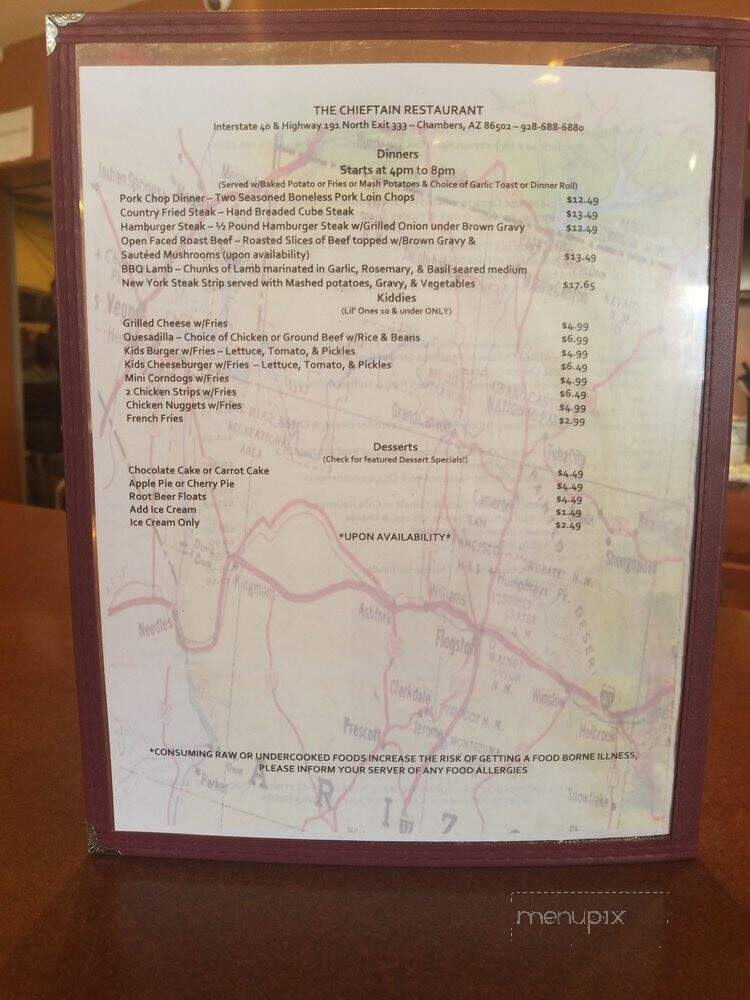 THE CHIEFTAIN RESTAURANT
Interstate 40 & Highway 191 North Exit 333 – Chambers, AZ 86502 – 928-688-6880
Dinners
Starts at 4pm to 8pm
(Served w/Baked Potato or Fries or Mash Potatoes & Choice of Garlic Toast or Dinner Roll)
Pork Chop Dinner – Two Seasoned Boneless Pork Loin Chops $12.49
Country Fried Steak – Hand Breaded Cube Steak $13.49
Hamburger Steak – ½ Pound Hamburger Steak w/Grilled Onion under Brown Gravy $12.49
Open Faced Roast Beef – Roasted Slices of Beef topped w/Brown Gravy &
Sautéed Mushrooms (upon availability) $13.49
BBQ Lamb – Chunks of Lamb marinated in Garlic, Rosemary, & Basil seared medium
New York Steak Strip served with Mashed potatoes, Gravy, & Vegetables $17.65
Kiddies
(Lil' Ones 10 & under ONLY)
Grilled Cheese w/Fries $4.99
Quesadilla – Choice of Chicken or Ground Beef w/Rice & Beans $6.99
Kids Burger w/Fries – Lettuce, Tomato, & Pickles $4.99
Kids Cheeseburger w/Fries – Lettuce, Tomato, & Pickles $6.49
Mini Corndogs w/Fries $4.99
2 Chicken Strips w/Fries $6.49
Chicken Nuggets w/Fries $4.99
French Fries $2.99
Desserts
(Check for featured Dessert Specials!)
Chocolate Cake or Carrot Cake $4.49
Apple Pie or Cherry Pie $4.49
Root Beer Floats $4.49
Add Ice Cream $1.49
Ice Cream Only $2.49
*UPON AVAILABILITY*
Indian Springs
RECREATIONAL
AREA
Cameron
Shongopovi
Kingman
Needles
Ashfork
Williams
Humphreys Pk.
SUNSET
CRATER
N.M.
DESERT
Flagstaff
WALNUT
CANYON
N.M.
Clarkdale
TUZIGOOT N.M.
Winslow
Holbrook
Jerome
Prescott
MONTEZUMA
Parker
Snowflake
*CONSUMING RAW OR UNDERCOOKED FOODS INCREASE THE RISK OF GETTING A FOOD BORNE ILLNESS,
PLEASE INFORM YOUR SERVER OF ANY FOOD ALLERGIES
A R I Z
menupix